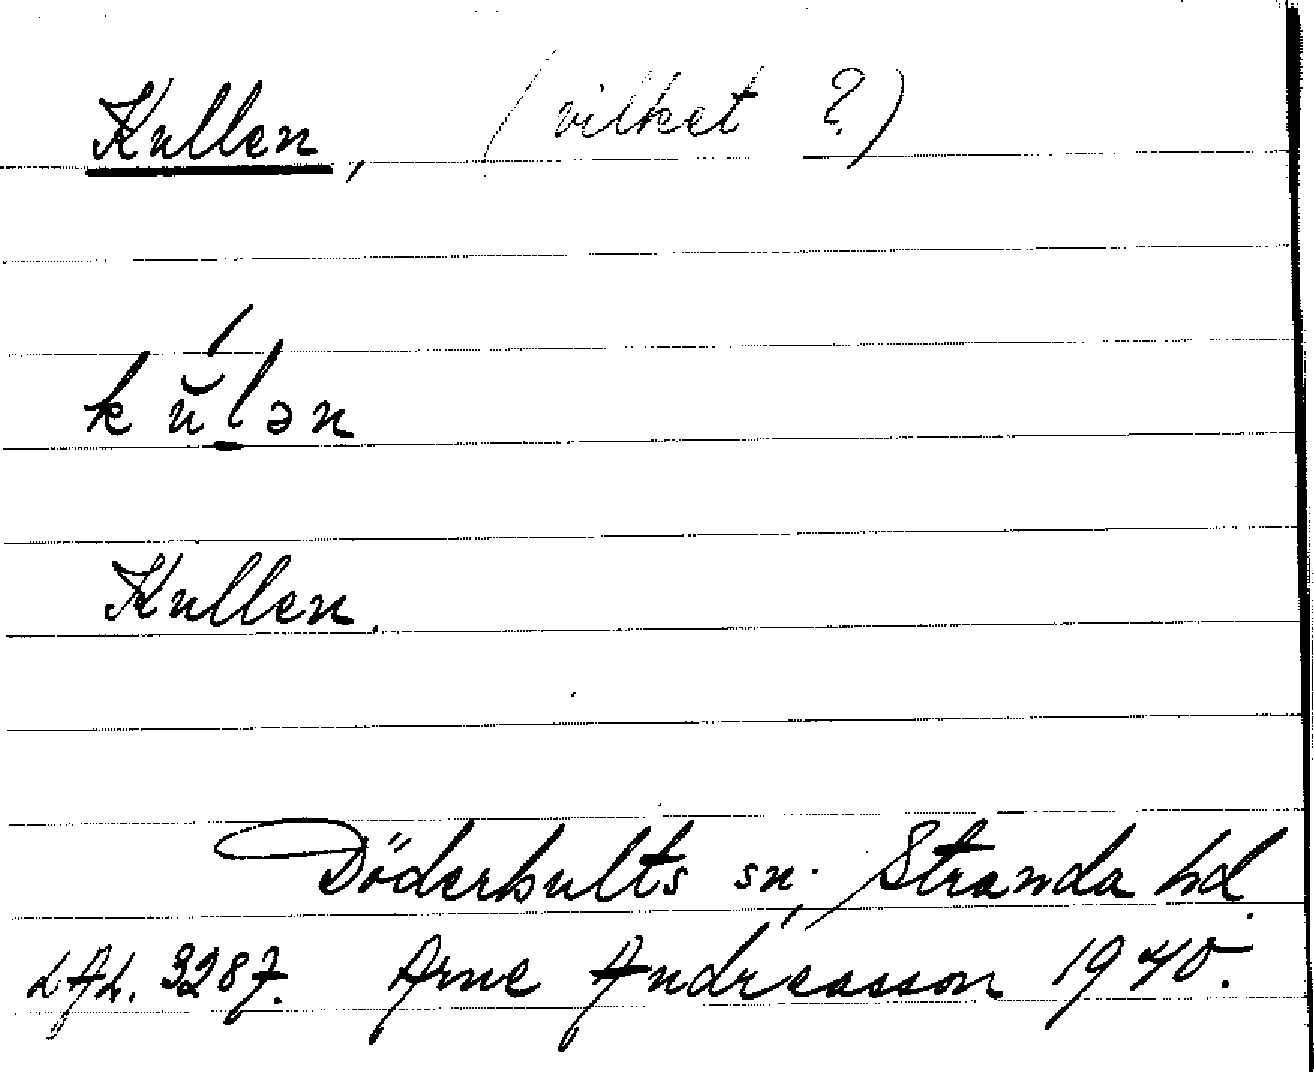 Kullen, (vilket ?)
kŭ́l̥ən
Kullen.
Döderhults sn., Stranda hd.
LAL. 3287. Arne Andréasson 1940.